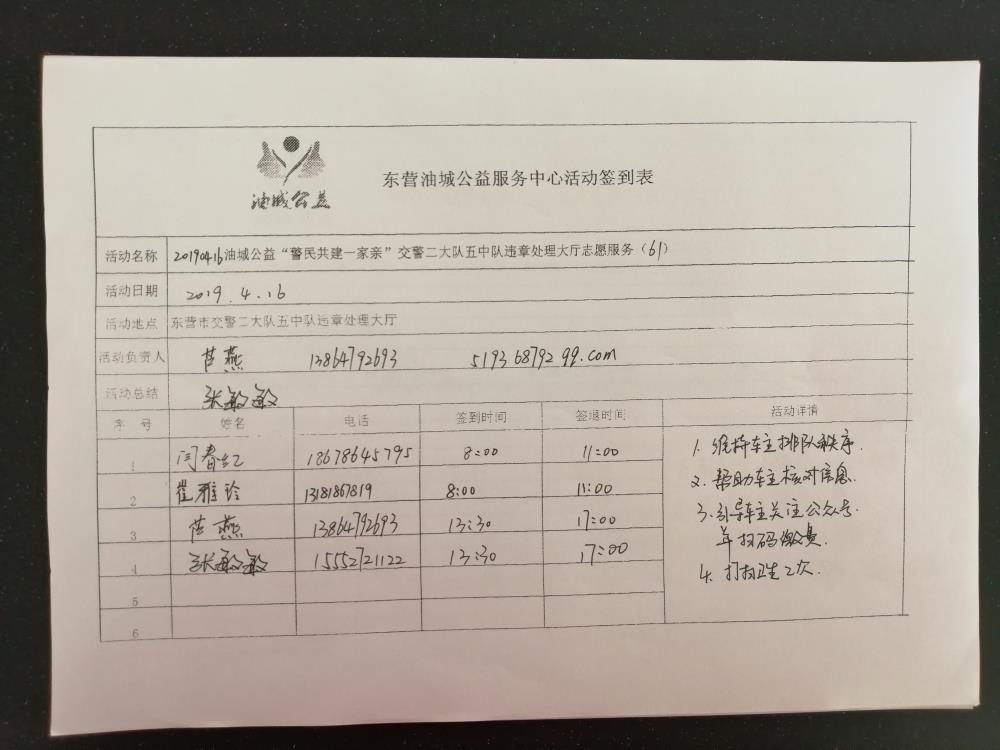 油城公益
东营油城公益服务中心活动签到表
活动名称 20190416油城公益“警民共建一家亲”交警二大队五中队违章处理大厅志愿服务（61）
活动日期 2019.4.16
活动地点 东营市交警二大队五中队违章处理大厅
活动负责人 燕 13864792693 519368792 99.com
活动总结 张敏敏
序号 姓名 电话 签到时间 签退时间 活动详情
1 闫春红 18678645795 8:00 11:00
2 崔雅玲 13181867819 8:00 11:00
3 燕 13864792693 13:30 17:00
4 张敏敏 15552721122 13:30 17:00
5
6
1. 维持车主排队秩序.
2. 帮助车主核对信息.
3. 引导车主关注公众号.
并扫码缴费.
4. 打扫卫生2次.